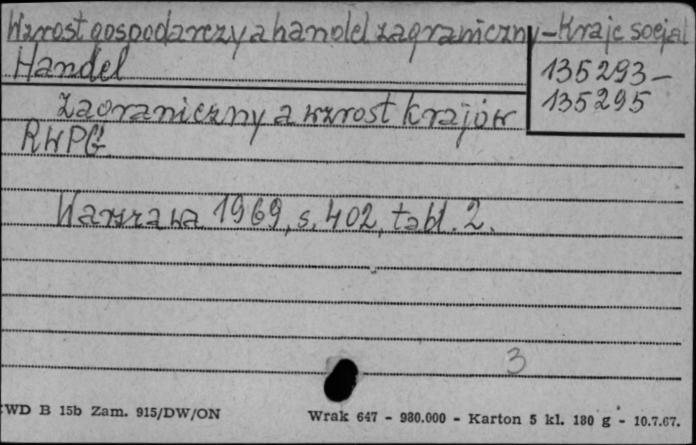 Wzrost gospodarczy a handel zagraniczny - Kraje socjal
Handel
135293-
135295
zagraniczny a wzrost krajów
RWPG
Warszawa 1969, s. 402, tabl. 2.
3
CWD B 15b Zam. 915/DW/ON
Wrak 647 - 980.000 - Karton 5 kl. 180 g - 10.7.67.